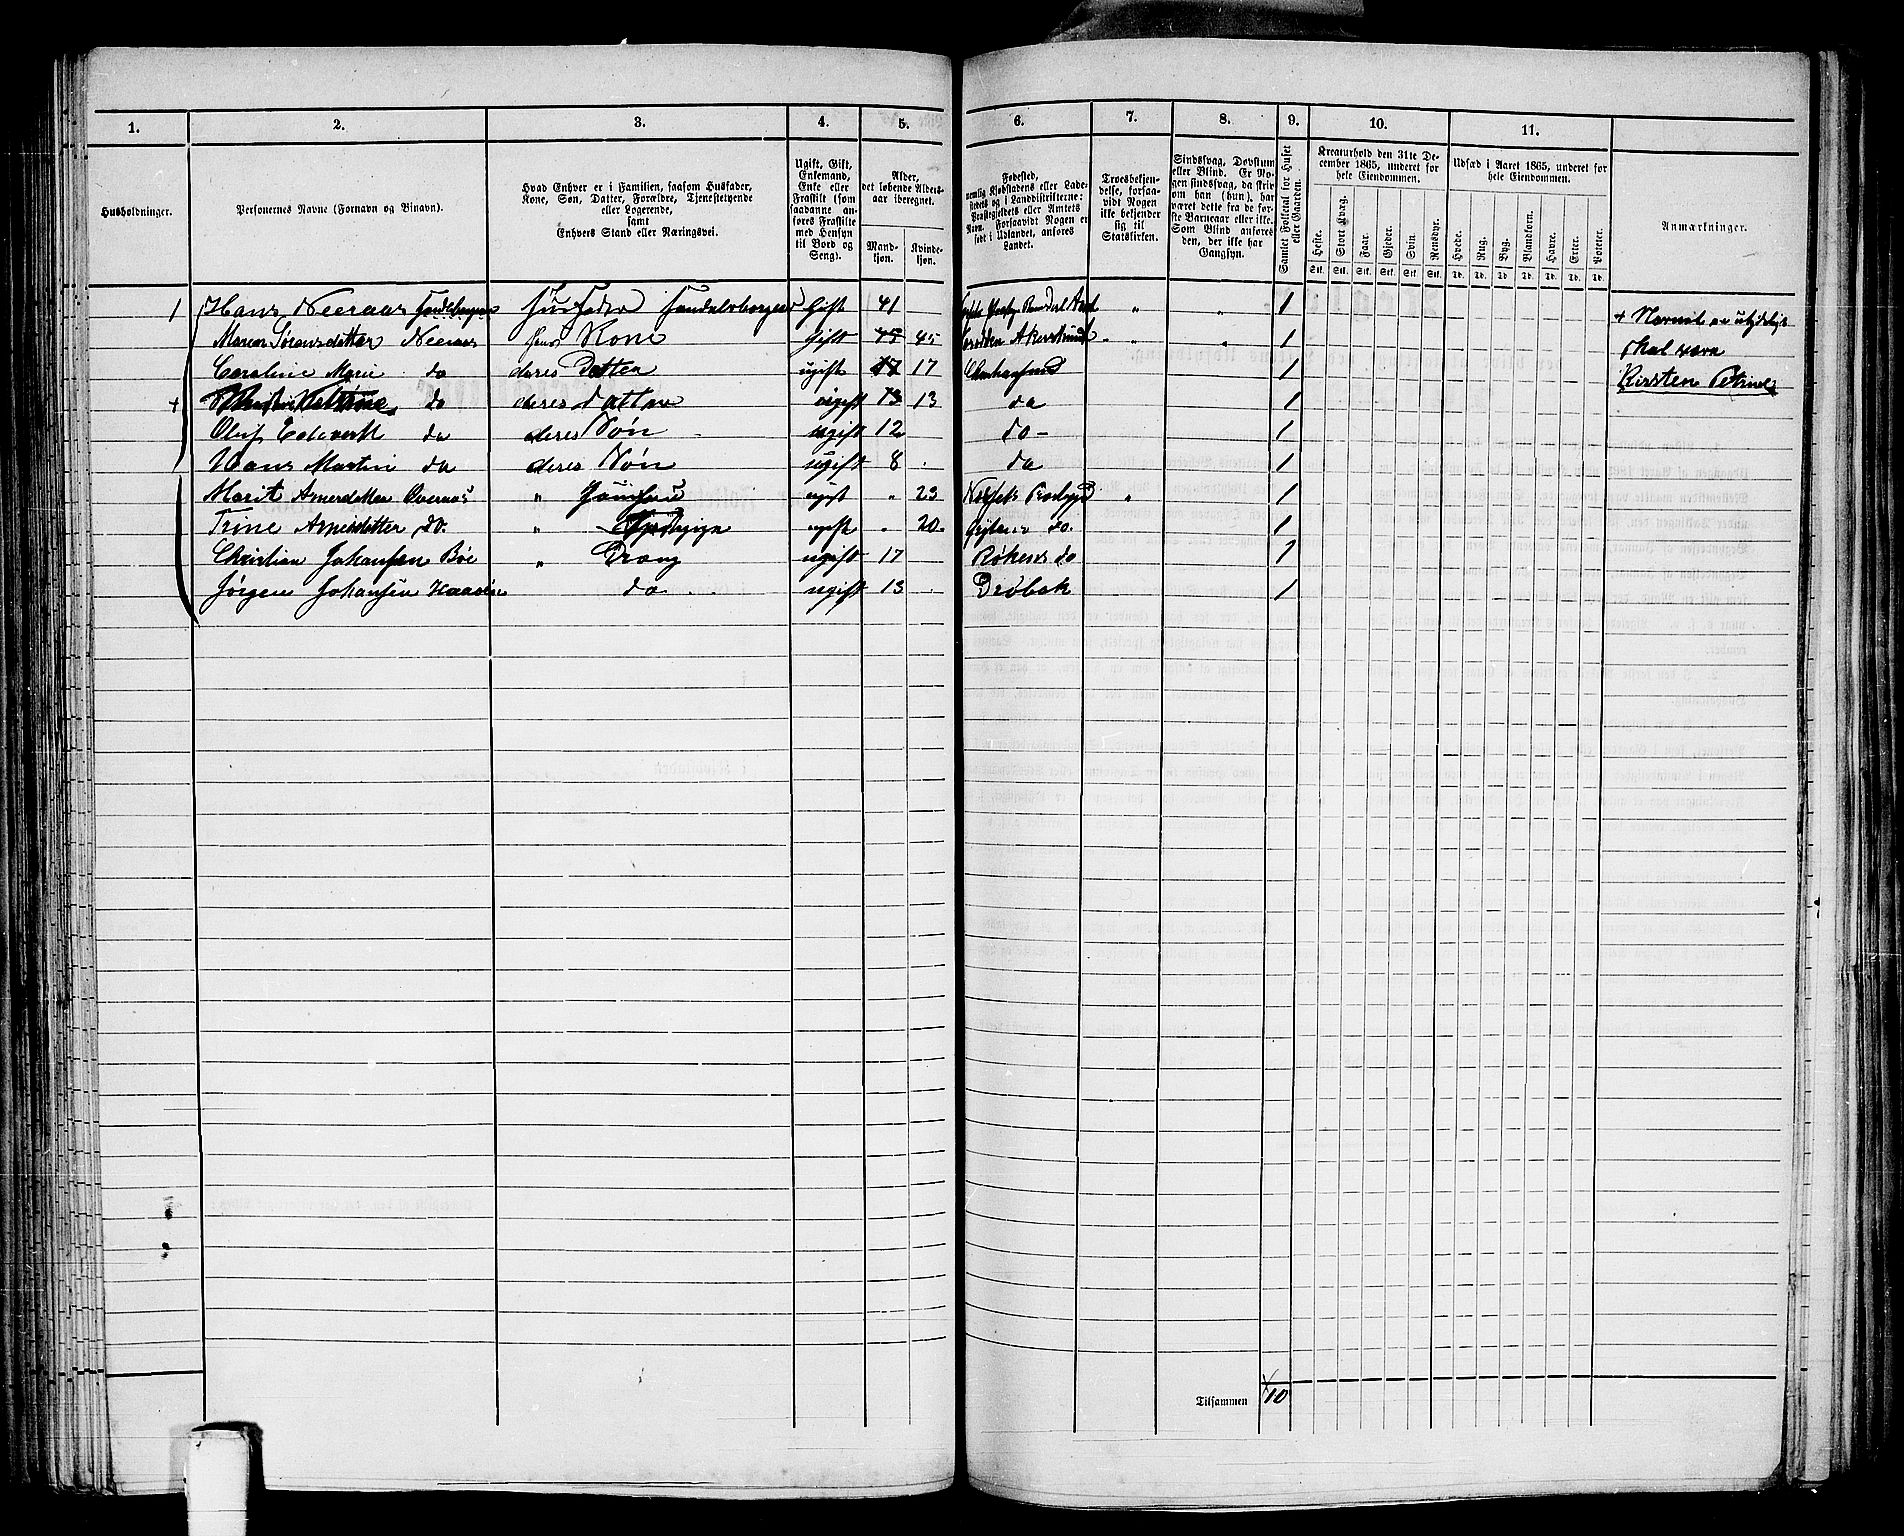 1. 2. 3. 4. 5. 6. 7. 8. 9. 10. 11.
Husholdninger.
Personernes Navne (Fornavn og Binavn).
Hvad Enhver er i Familien, saasom Husfader,
Kone, Søn, Datter, Forældre, Tjenestetyende
eller Logerende,
samt
Enhvers Stand eller Næringsvei.
Ugift, Gift,
Enkemand,
Enke eller
Fraskilt (som
saadanne an-
føres Fraskilte
med Hensyn
til Bord og
Seng).
Alder,
det løbende Alders-
aar iberegnet.
Mand-
kjøn.
Kvinde-
kjøn.
Fødested,
nemlig Kjøbstadens eller Lade-
stedets og i Landdistrikterne:
Præstegjeldets eller Amtets
Navn. Forsaavidt Nogen er
født i Udlandet, anføres
Landet.
Troesbekjen-
delse, forsaa-
vidt Nogen
ikke bekjender
sig til
Statskirken.
Sindssvag, Døvstum
eller Blind. Er No-
gen sindssvag, da skri-
ves han (hun), har
været dette fra de før-
ste Barneaar eller ikke.
Som Blind anføres
den, der ikke har
Gangsyn.
Samlet Folketal for Huset
eller Gaarden.
Kreaturhold den 31te De-
cember 1865, underet for
hele Eiendommen.
Heste. Stort Kvæg. Faar. Gjeder. Svin. Rensdyr.
Stk. Stk. Stk. Stk. Stk. Stk.
Udsæd i Aaret 1865, underet for
hele Eiendommen.
Hvede. Rug. Byg. Blandkorn. Havre. Erter. Poteter.
Td. Td. Td. Td. Td. Td. Td.
Anmærkninger.
1 Hans Neeraas Husfader Gift 41 1
Maren Sørensdatter Neeraas hans Kone gift 45 45 1
Caroline Marie do deres Datter ugift 17 17 1
+ do deres Datter ugift 13 13 do 1
Oluf Edevert do deres Søn ugift 12 do 1
Hans Martin do deres Søn ugift 8 do 1
Marit Arnesdatter Overaas " ugift " 23 " 1
Trine Arnesdatter do. " ugift " 20 do. 1
Christian Johansen Bøe " Dreng ugift 17 Røkens do 1
Jørgen Johansen do ugift 13 Drøbak 1
+ Navnet er utydeligt
skal være
Kirsten Petrine
Tilsammen 10